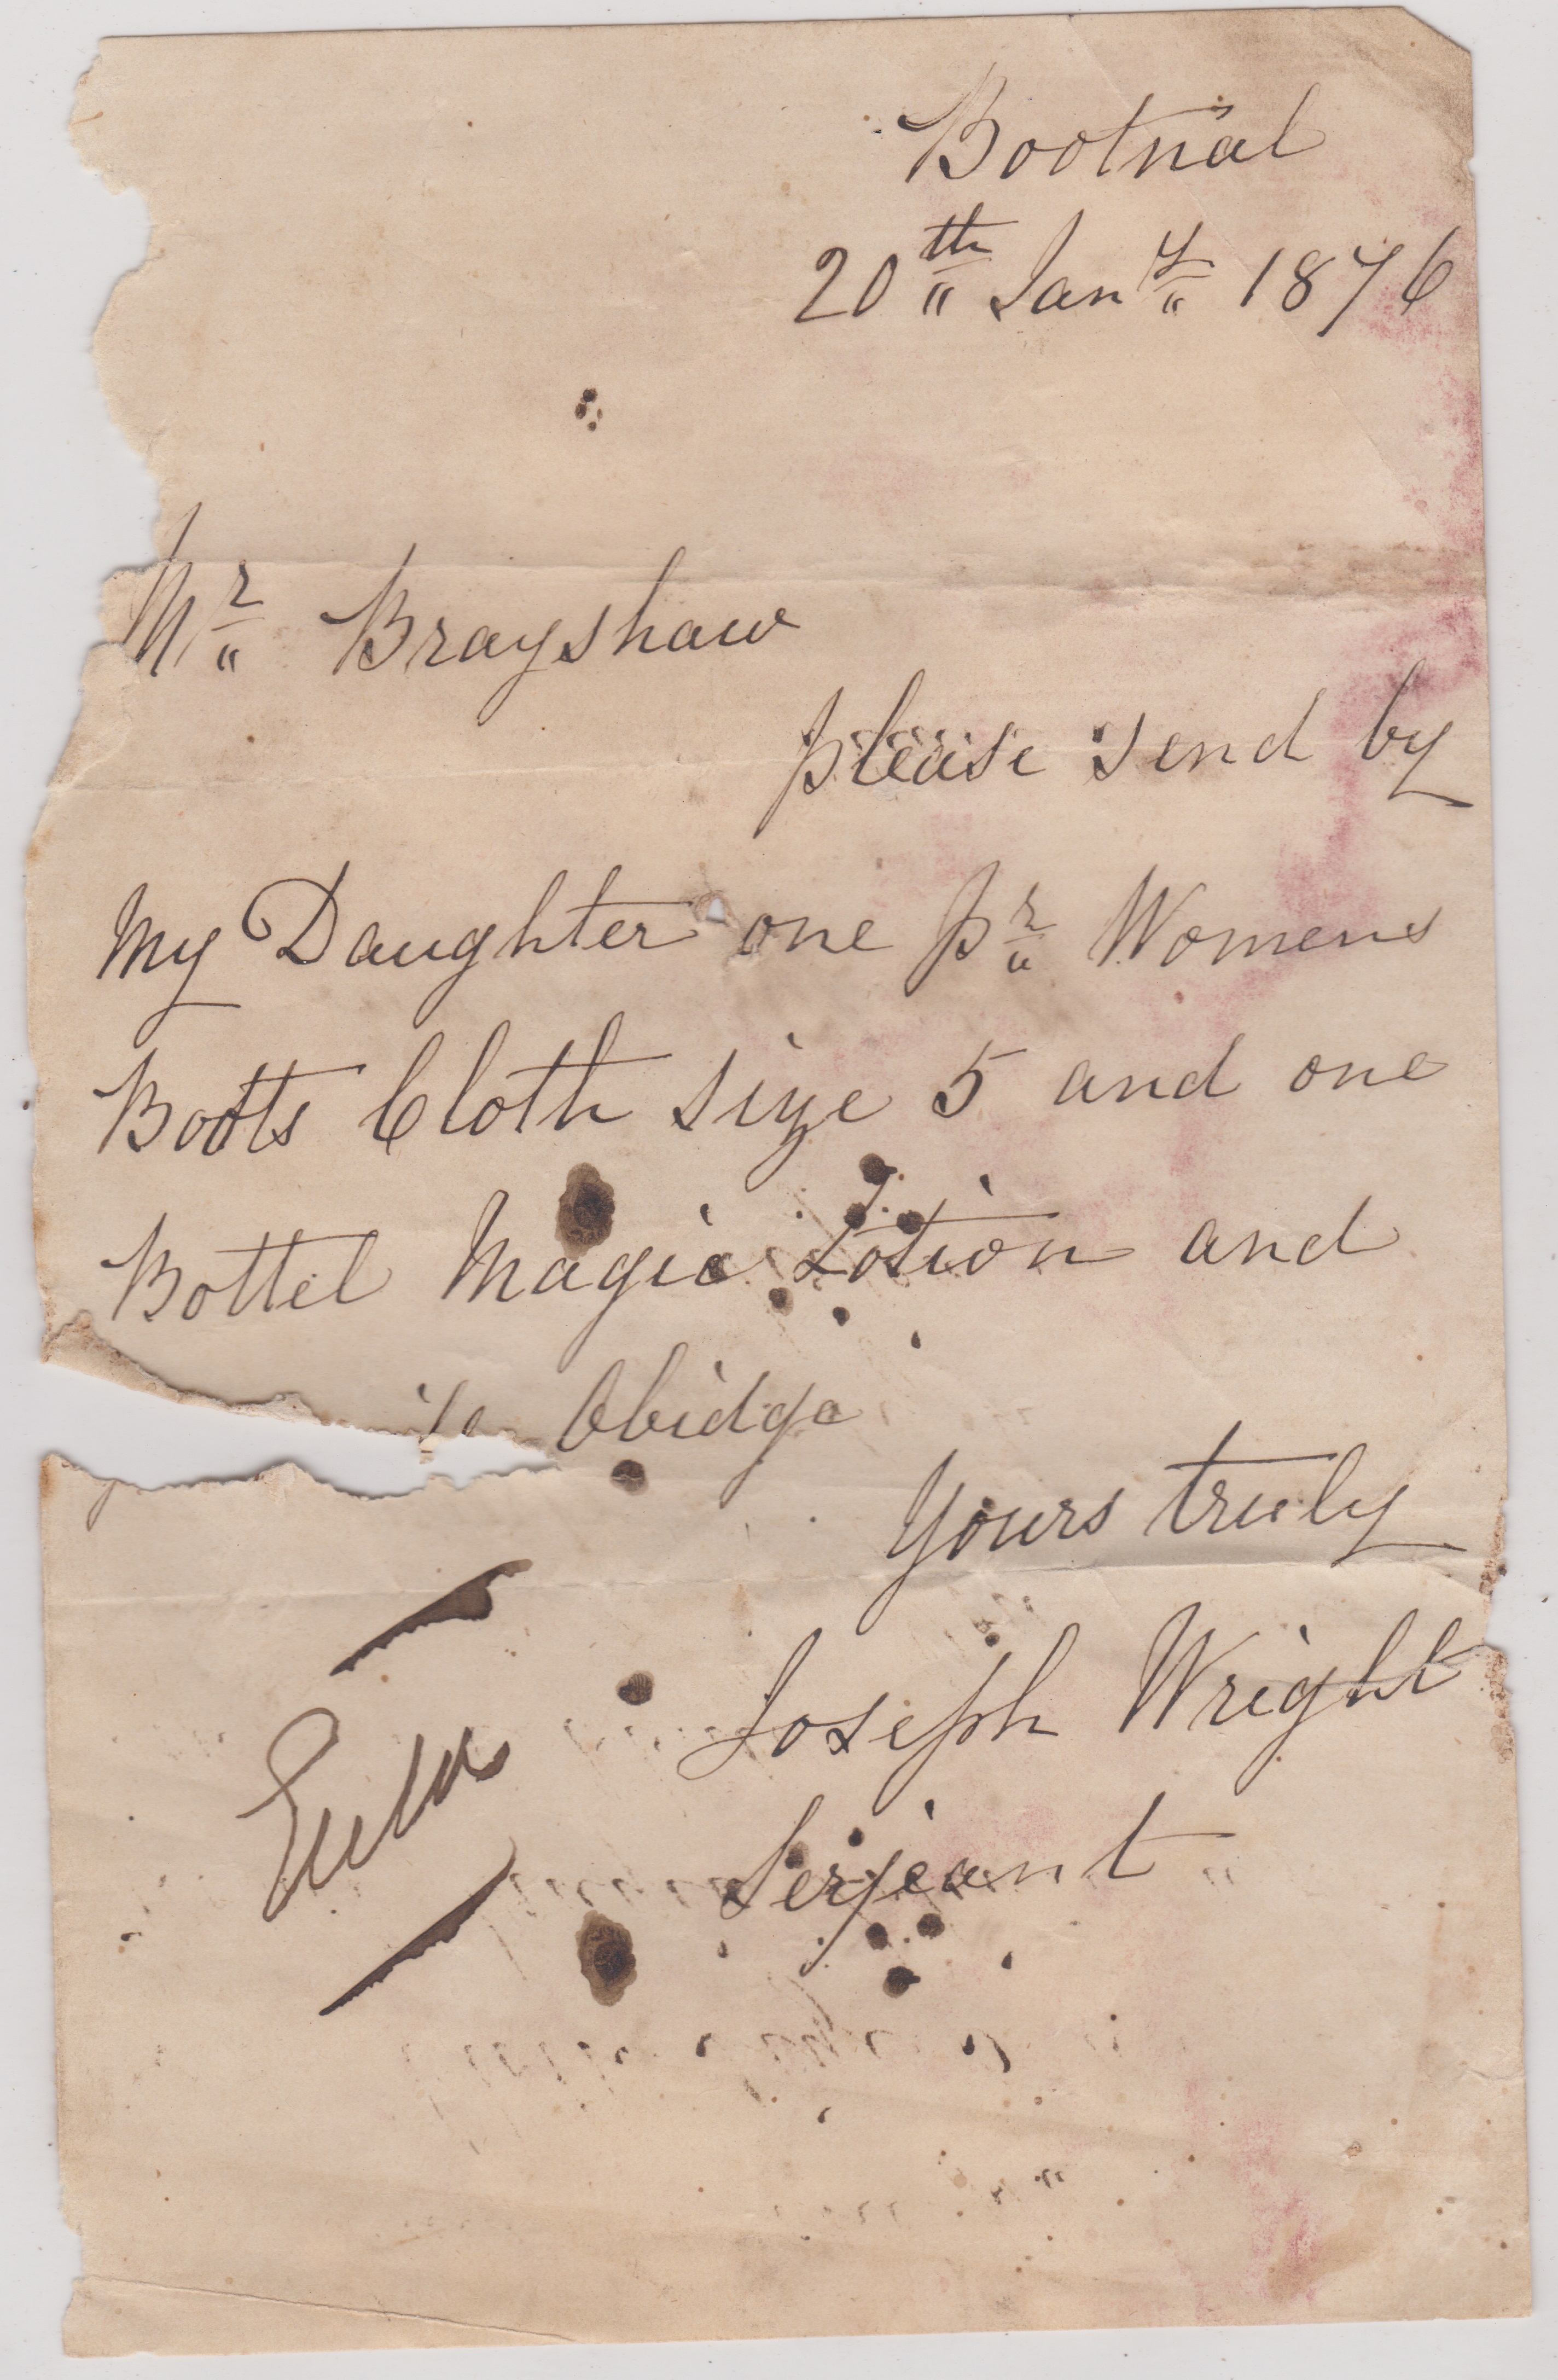 Bootnal
20th Jany 1876
Mr Brayshaw
please send by
My Daughter one Pr Womens
Boots Cloth size 5 and one
Bottel Magic Lotion and
Obidge
Yours truly
Joseph Wright
Serjeant